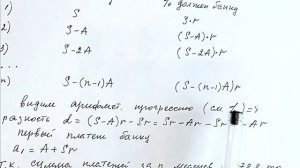 S то должен банку
1) S·r
2) S-A (S-A)·r
3) S-2A (S-2A)·r
n) S-(n-1)A (S-(n-1)A)r
видим арифмет. прогрессию (см
разность d = (S-A)r - Sr = Sr - Ar - Sr = -Ar
первый платеж банку
a₁ = A + Sr
Т.к. сумма платежей за n месяцев